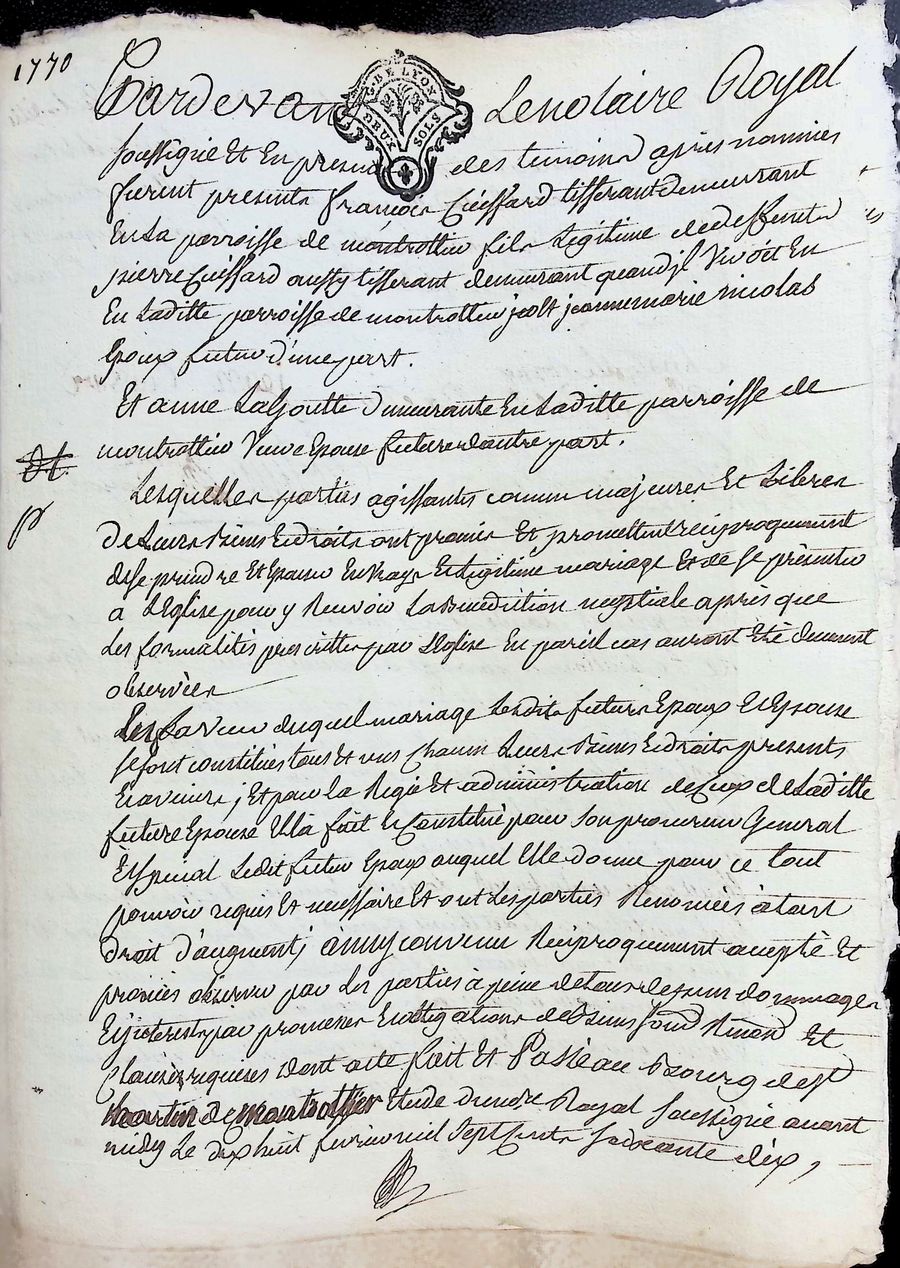 1770
Pardevant Le notaire Royal
G. DE LYON
DEUX SOLS
soussigné Et En presence des temoins après nommés
furent presents françois Cuissard tisserant demeurant
En La parroisse de montrottier fils Legitime de deffunts
pierre Cuissard aussy tisserant demeurant quand jl vivoit En
En Laditte parroisse de montrottier jeannemarie nicolas
Epoux futur d'une part.
Et anne Lagoutte demeurante En Laditte parroisse de
montrottier Epouse future d'autre part.
Lesquelles parties agissantes comme majeures Et Libres
De Leurs Biens Et droits ont promis Et promettent reciproquement
de se prendre Et Epouser En vray Et Legitime mariage Et de se presenter
a L'Eglise pour y Recevoir La Benediction nuptiale après que
Les formalités prescrittes par L'Eglise En pareil cas auront Eté duement
observées
En faveur duquel mariage Lesdits futurs Epoux Et Epouse
se sont constitués tous Et uns Chacun Leurs Biens Et droits presents
Et avenirs ; Et pour La Regie Et administration de Ceux de Laditte
future Epouse Elle a fait Et Constitué pour son procureur General
Et Special Ledit futur Epoux auquel Elle donne pour ce tout
pouvoir requis Et necessaire Et ont Les parties Renoncées à tout
droit d'augment ; ainsy convenu Reciproquement accepté Et
promis observer par Les parties à peine de tous depens dommages
Et jnterests par promesses Et obligations de Biens Renond Et
Clauses requises dont acte fait Et Passé au Bourg de st
martin de montrottier Etude du notre Royal soussigné avant
midy Le dix huit fevrier mil sept Cents soixante dix,